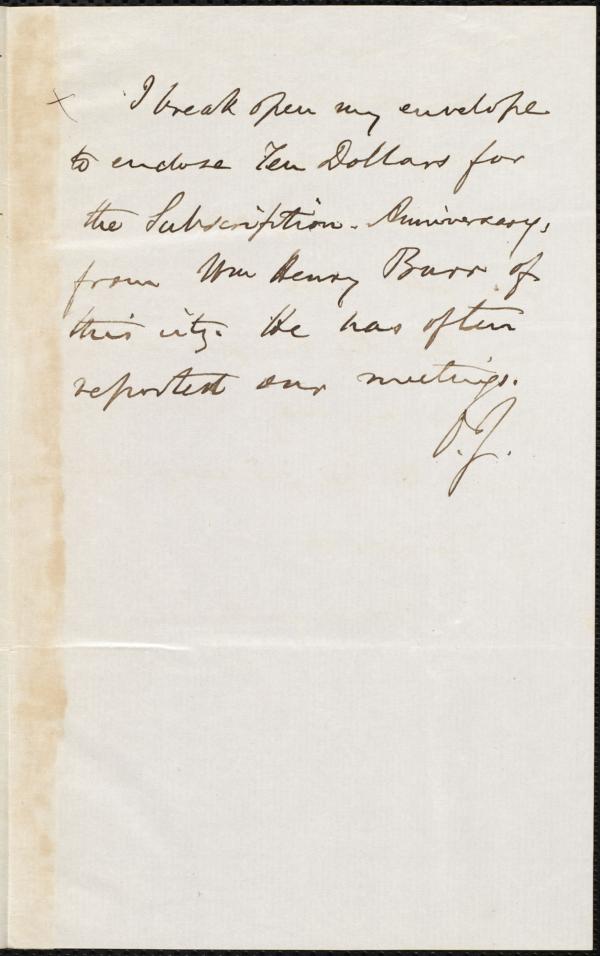 x I break open my envelope
to enclose Ten Dollars for
the Subscription-Anniversary,
from Wm Henry Burr of
this city. He has often
reported our meetings.
O.J.